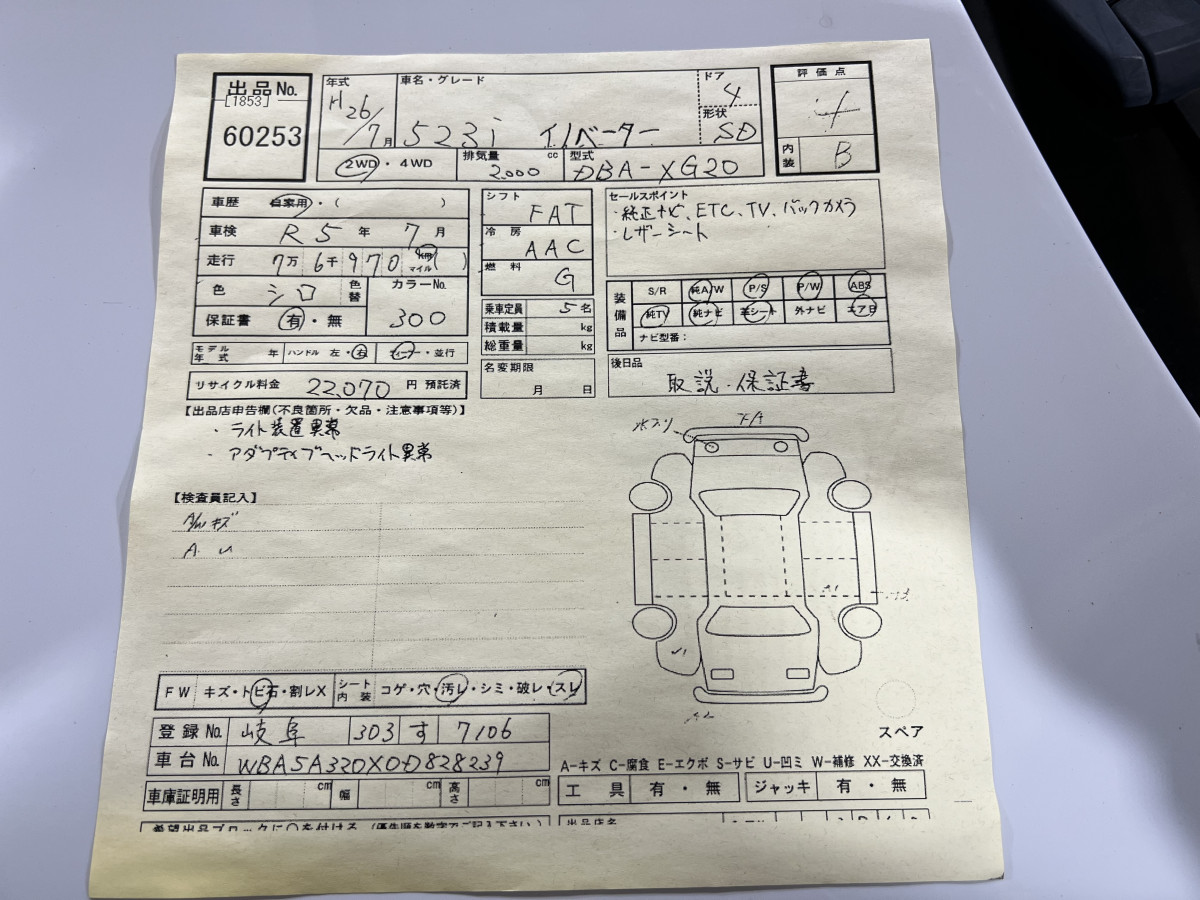 出品No.
[1853]
60253
年式
H26/7月
車名・グレード
523i イノベーター
ドア
4
形状
SD
2WD・4WD
排気量 cc
2000
型式
DBA-XG20
評価点
4
内装
B
車歴 自家用・( )
車検 R5年 7月
走行 7万 6千 970 km マイル ( )
色 シロ 色替
カラーNo.
300
保証書 有・無
モデル年式 年 ハンドル 左・右 ディーラー・並行
リサイクル料金 22,070 円 預託済
シフト
FAT
冷房
AAC
燃料
G
乗車定員 5名
積載量 kg
総重量 kg
名変期限
月 日
セールスポイント
・純正ナビ、ETC、TV、バックカメラ
・レザーシート
装備品
S/R 純A/W P/S P/W ABS
純TV 純ナビ 革シート 外ナビ エアB
ナビ型番:
後日品
取説・保証書
【出品店申告欄(不良箇所・欠品・注意事項等)】
・ライト装置異常
・アダプティブヘッドライト異常
【検査員記入】
A/W キズ
A. U
FW キズ・トビ石・割レX シート内装 コゲ・穴・汚レ・シミ・破レ・スレ
登録No. 岐阜 303 す 7106
車台No. WBA5A320X0D828239
車庫証明用 長さ cm 幅 cm 高さ cm
スペア
A-キズ C-腐食 E-エクボ S-サビ U-凹ミ W-補修 XX-交換済
工具 有・無 ジャッキ 有・無
希望出品ブロックに○を付ける (優先順を数字でご記入下さい)
出品店名